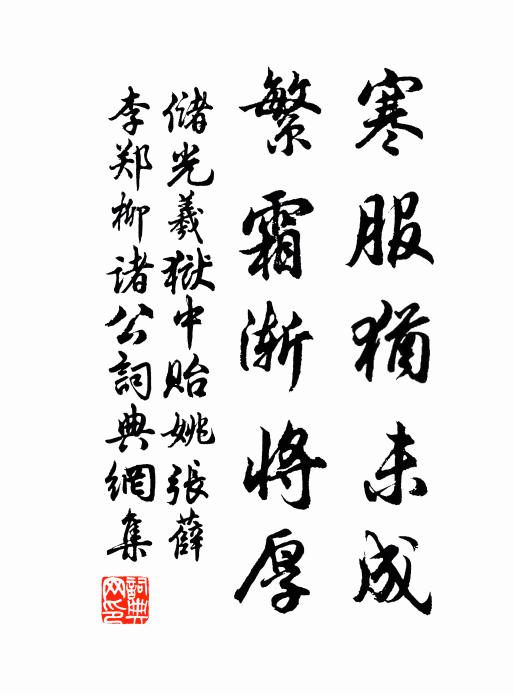 寒服猶未成
繁霜漸將厚
儲光羲獄中貽姚張薛
李郑柳诸公詞典網集
詞典網印